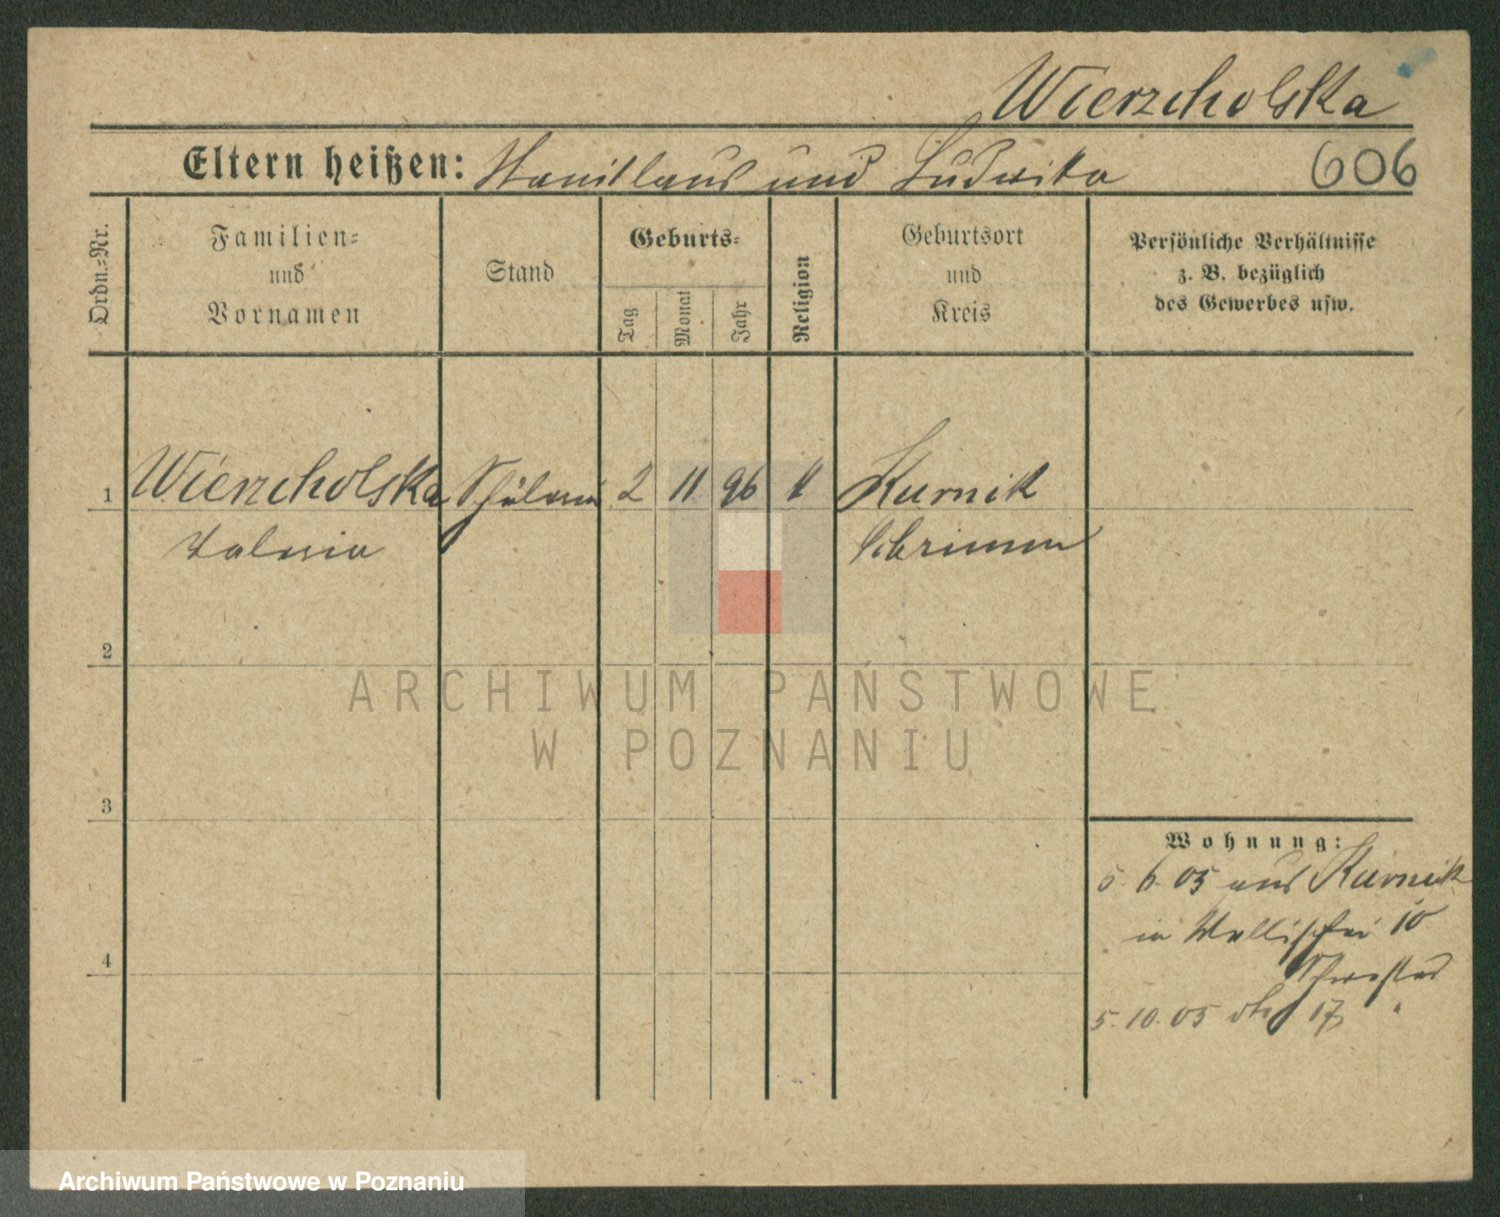 Wierzcholska
Eltern heißen: Stanislaus und Ludwika 606
Ordn.-Nr.
Familien-
und
Vornamen
Stand
Geburts-
Tag
Monat
Jahr
Religion
Geburtsort
und
Kreis
Persönliche Verhältnisse
z. B. bezüglich
des Gewerbes usw.
1 Wierzcholska Schülerin 2 11 96 k Kurnik
Valeria Schrimm
2
ARCHIWUM PAŃSTWOWE
W POZNANIU
3
Wohnung:
5. 6. 05 aus Kurnik
in Wallischei 10
Schwester
4
5. 10. 05 17 "
Archiwum Państwowe w Poznaniu